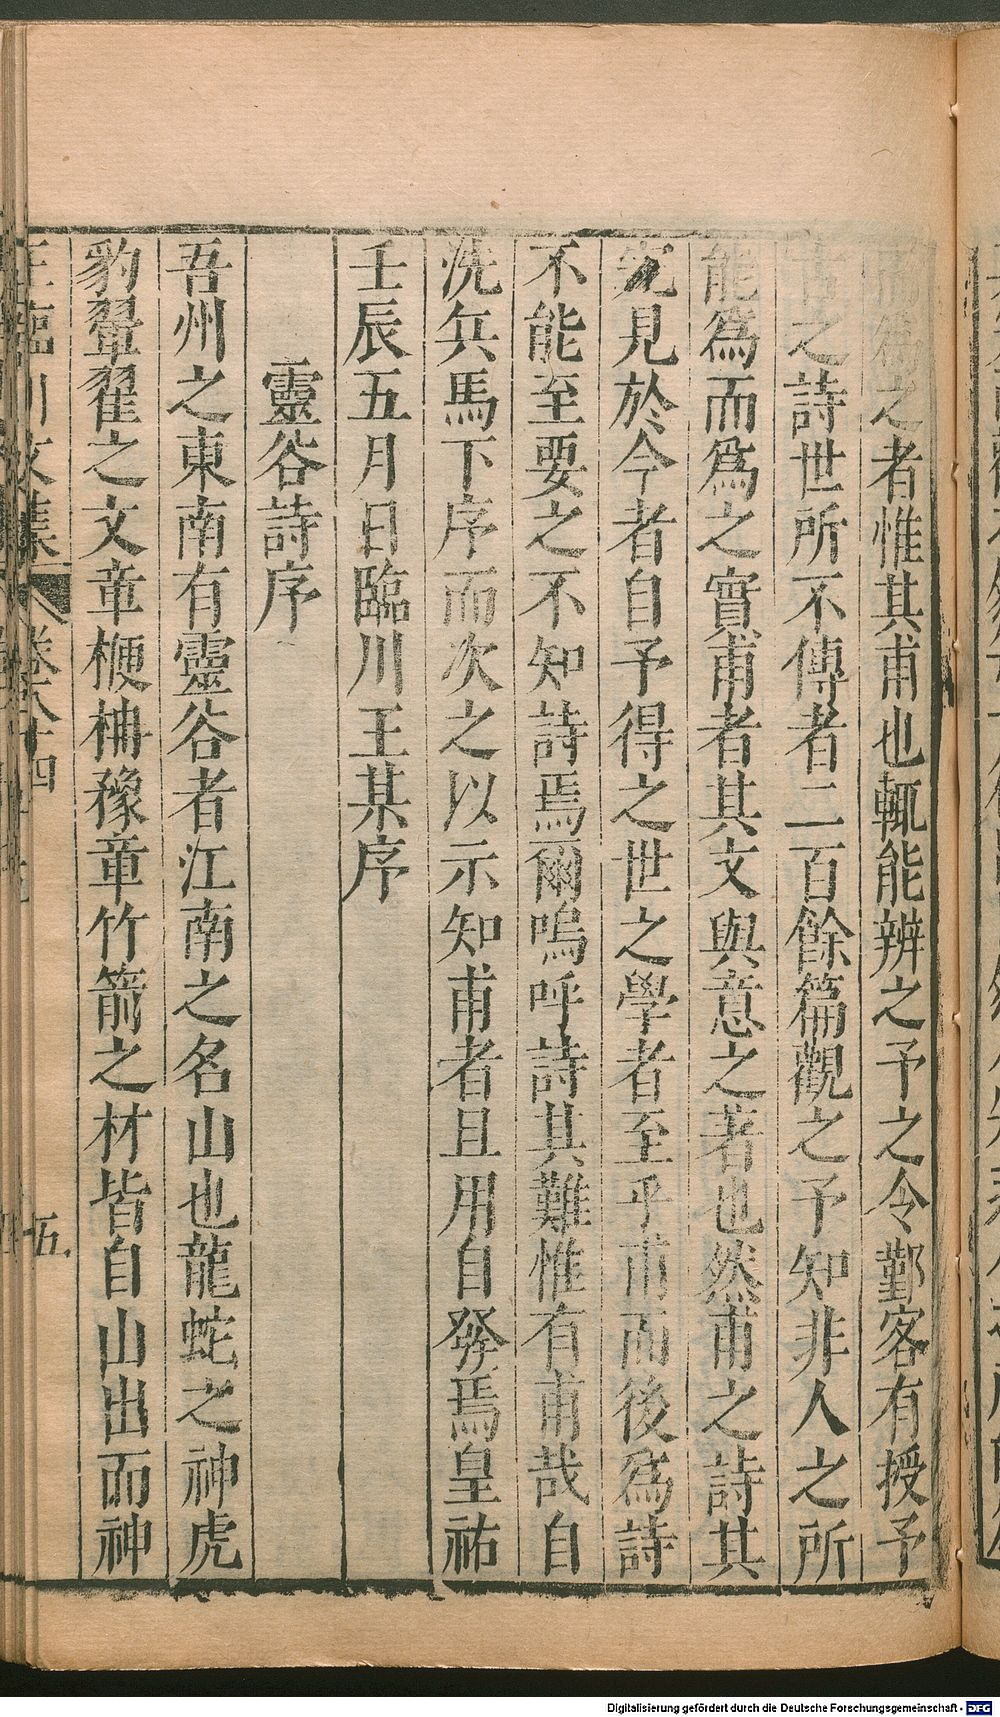 為之者惟其甫也輒能辨之予之令鄞客有授予
之詩世所不傳者二百餘篇觀之予知非人之所
能爲而爲之實甫者其文與意之著也然甫之詩其
完見於今者自予得之世之學者至乎甫而後爲詩
不能至要之不知詩焉爾嗚呼詩其難惟有甫哉自
洗兵馬下序而次之以示知甫者且用自發焉皇祐
壬辰五月日臨川王某序
靈谷詩序
吾州之東南有靈谷者江南之名山也龍蛇之神虎
豹翬翟之文章楩柟豫章竹箭之材皆自山出而神
王臨川文集 卷八十四 五
Digitalisierung gefördert durch die Deutsche Forschungsgemeinschaft - DFG